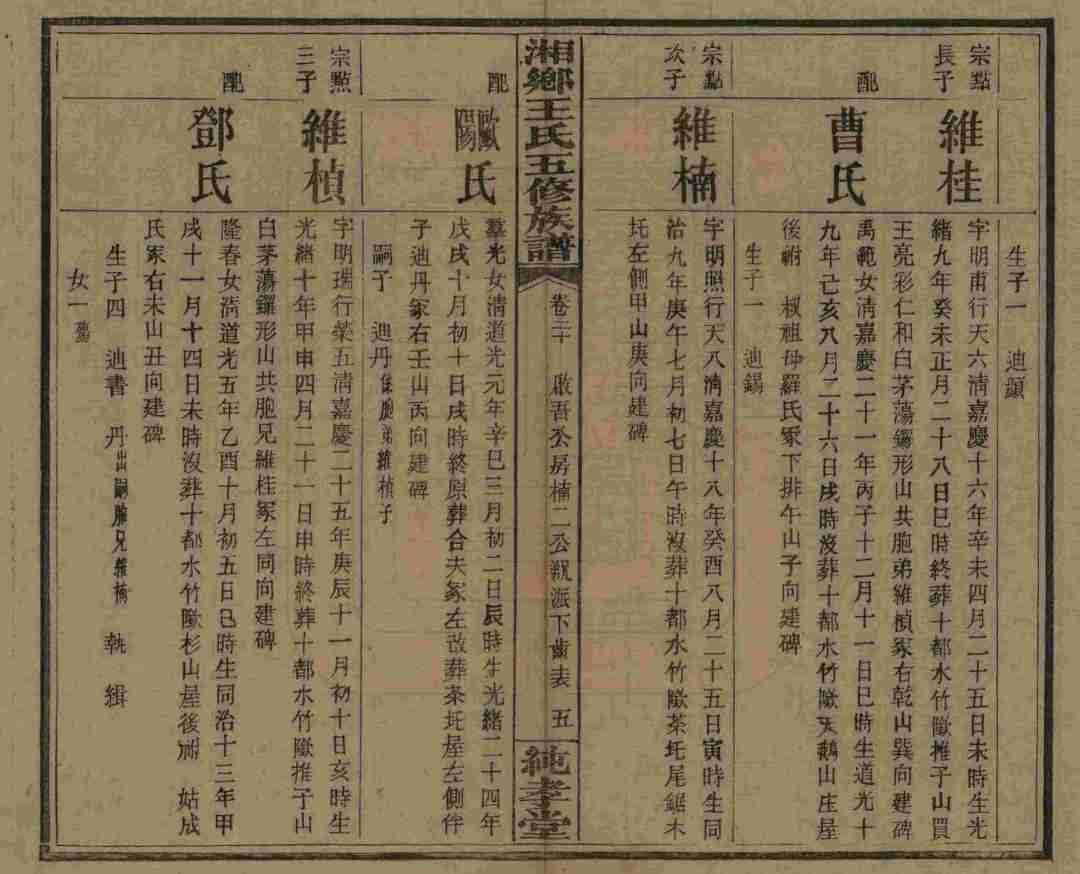 生子一　迪頴
宗㸃長子
維桂
字明甫行天六淸嘉慶十六年辛未四月二十五日未時生光
緒九年癸未正月二十八日巳時終葬十都水竹歐推子山買
王亮彩仁和白茅蕩鑼形山共胞弟維楨冢右乾山巽向建碑
配
曹氏
禹範女淸嘉慶二十一年丙子十二月十一日巳時生道光十
九年己亥八月二十六日戌時沒葬十都水竹歐天鵝山庄屋
後祔　叔祖母羅氏冢下排午山子向建碑
生子一　迪錫
宗㸃次子
維楠
字明照行天八淸嘉慶十八年癸酉八月二十五日寅時生同
治九年庚午七月初七日午時沒葬十都水竹歐茶坵尾鋸木
坵左側甲山庚向建碑
湘鄉王氏五修族譜
卷三十　啟吾公房楠二公派下齒表　五
純孝堂
配
歐陽氏
羣光女淸道光元年辛巳三月初二日辰時生光緒二十四年
戊戌十月初十日戌時終原葬合夫冢左改葬茶坵屋左側伴
子迪丹冢右壬山丙向建碑
嗣子　迪丹係胞弟維楨子
宗㸃三子
維楨
字明瑞行榮五淸嘉慶二十五年庚辰十一月初十日亥時生
光緒十年甲申四月二十一日申時終葬十都水竹歐推子山
白茅蕩鑼形山共胞兄維桂冢左同向建碑
配
鄧氏
隆春女淸道光五年乙酉十月初五日巳時生同治十三年甲
戌十一月十四日未時沒葬十都水竹歐杉山屋後祔　姑成
氏冢右未山丑向建碑
生子四　迪書　丹出嗣胞兄維楠　執　緝
女一